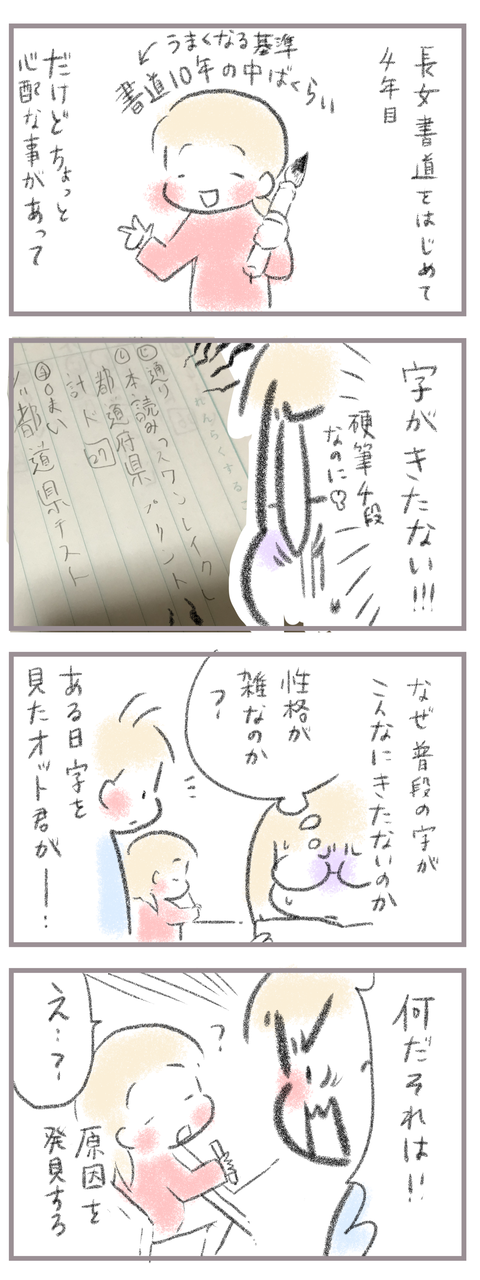 長女書道をはじめて
4年目
うまくなる基準
書道10年の中ばくらい
だけどちょっと
心配な事があって
字がきたない!!!
硬筆4段
なのに
通り
本読み スワンレイク
プリント
都道府県
計ド 27
都道県テスト
なぜ普段の字が
こんなにきたないのか
性格が
雑なのか
?
ある日字を
見たオット君が――:
何だそれは!!
?
え…?
原因を
発見する